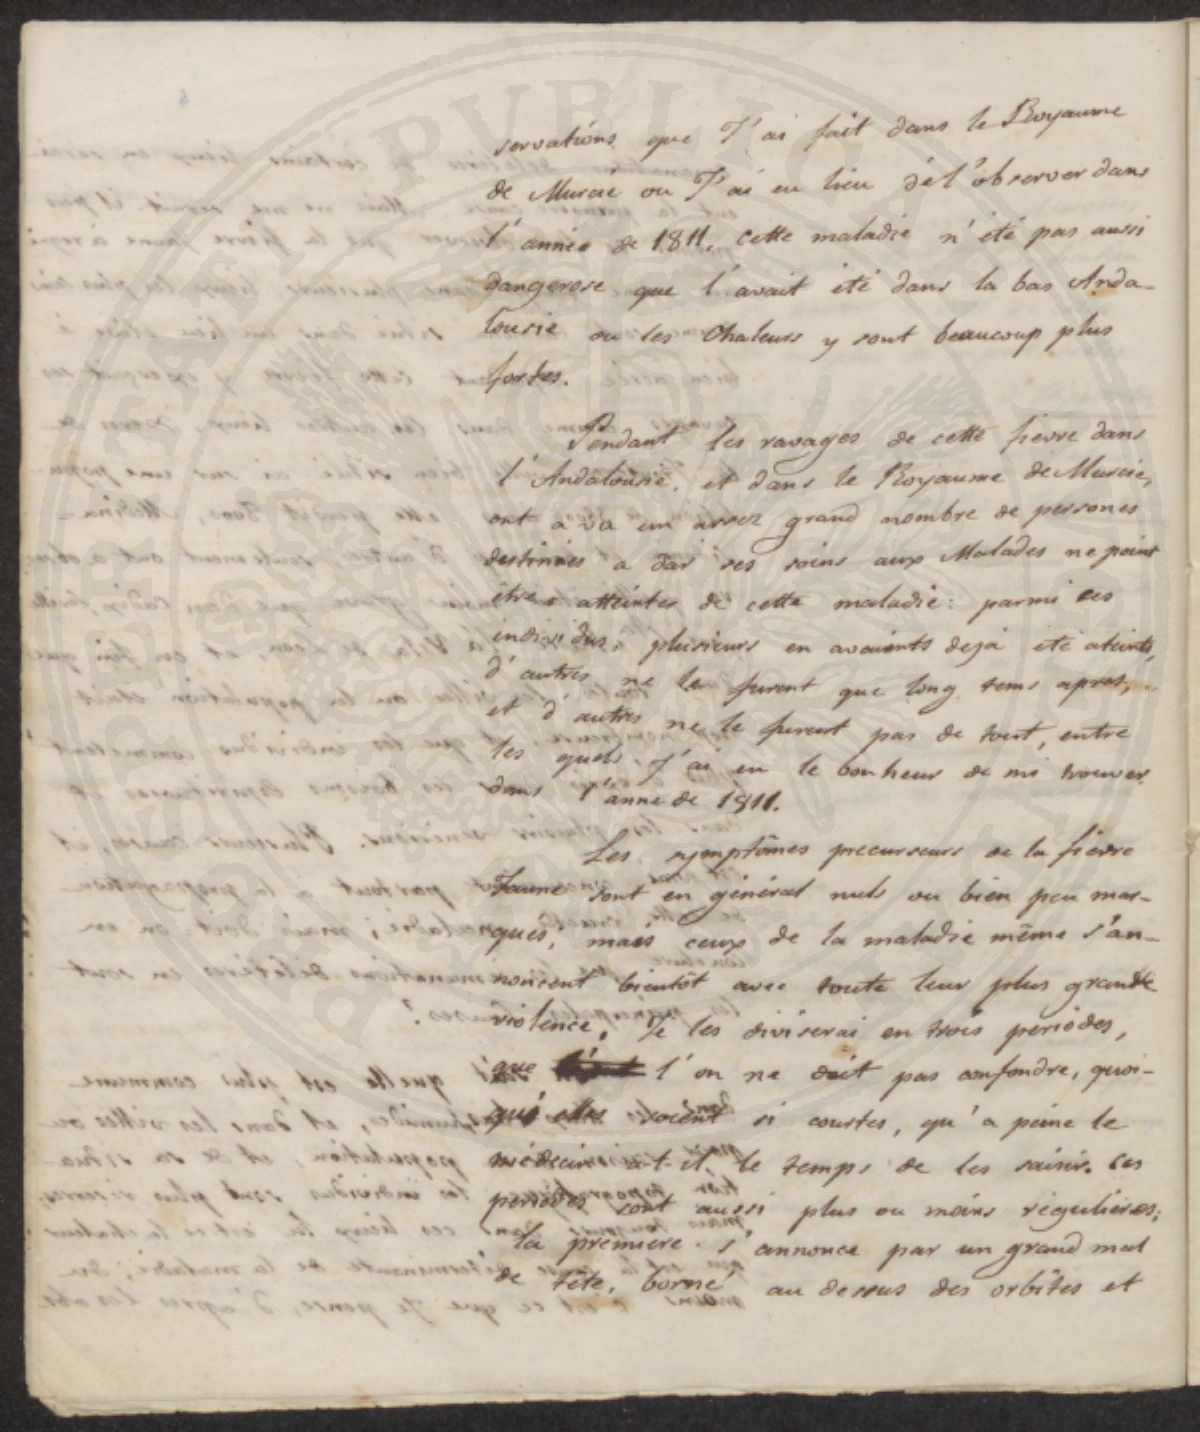 servations que J'ai fait dans le Royaume
de Murcie ou J'ai eu lieu dél'observer dans
l'année de 1811. cette maladie n'été pas aussi
dangerose que l'avait été dans la bas Anda-
lousie ou les Chaleurs y sont beaucoup plus
fortes.
Pendant les ravages de cette fievre dans
l'Andalousie, et dans le Royaume de Murcie,
ont a vu un assez grand nombre de persones
destinées a dar ses soins aux Malades ne point
être atteintes de cette maladie: parmi ces
individus, plusieurs en avaients deja été ateints,
d'autres ne le furent que long tems apres,
et d'autres ne le furent pas de tout, entre
les quels J'ai eu le bonheur de mi trouver
dans l'anne de 1811.
Les symptômes precurseurs de la fièvre
Jaune sont en général nuls ou bien peu mar-
qués, mais ceux de la maladie même s'an-
noncent bientôt avec toute leur plus grande
violence. Je les diviserai en trois periodes,
que l'on ne doit pas confondre, quoi-
qu'elles soient si courtes, qu'a peine le
médecin a-t-il le temps de les saisir. ces
periodes sont aussi plus ou moins régulières;
la première s'annonce par un grand mal
de tête, borné au dessus des orbites et